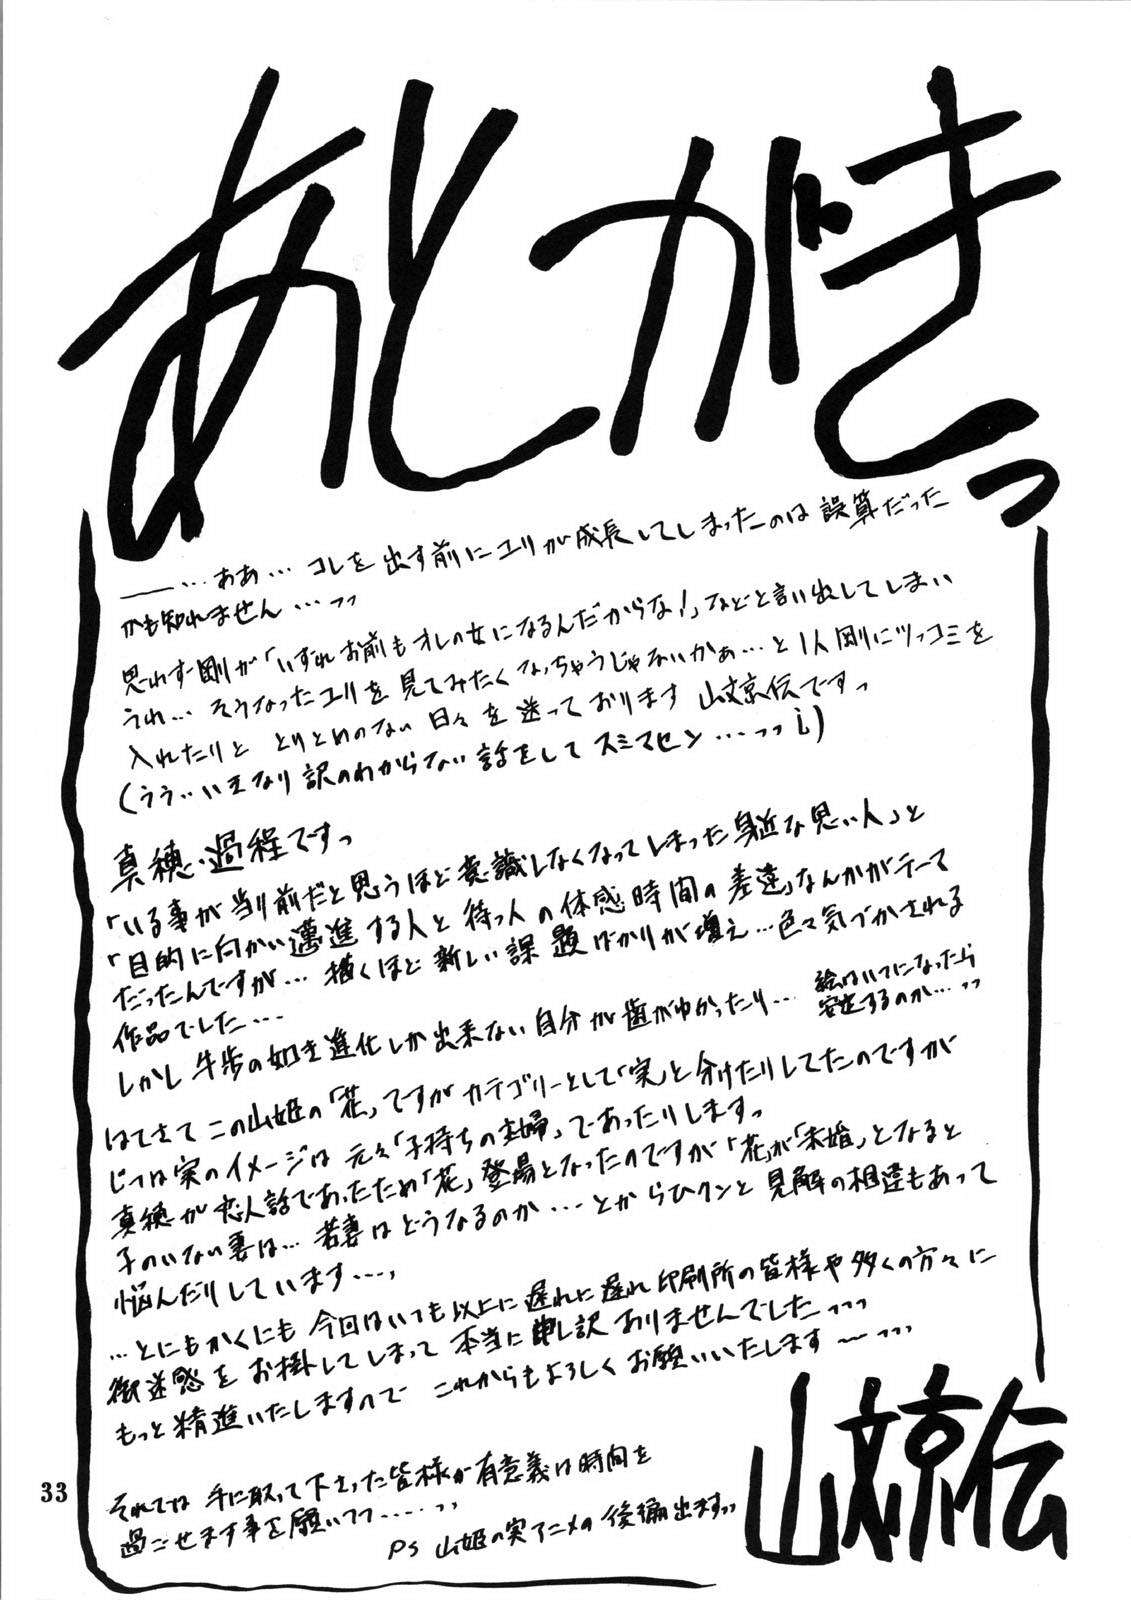 あとがきっ
――…ああ…コレを出す前にユリが成長してしまったのは誤算だった
かも知れません…っっ
思わず剛が「いずれお前もオレの女になるんだからな!」などと言い出してしまい
うれ…そうなったユリを見てみたくなっちゃうじゃないかぁ…と1人剛にツッコミを
入れたりと とりとめのない日々を送っております 山文京伝ですっ
(うう…いきなり訳のわからない話をしてスミマセン…っっ¡)
真穂・過程ですっ
「いる事が当り前だと思うほど意識しなくなってしまった身近な思い人」と
「目的に向かい邁進する人と待つ人の体感時間の差違」なんかがテーマ
だったんですが…描くほど新しい課題ばかりが増え…色々気づかされる
作品でした…
しかし牛歩の如き進化しか出来ない自分が歯がゆかったり… 絵はいつになったら
安定するのか…っっ
はてさてこの山姫の「花」ですがカテゴリーとして「実」と分けたりしてたのですが
じつは実のイメージは元々「子持ちの主婦」であったりします。
真穂が恋人話であったため「花」登場となったのですが「花」が「未婚」となると
子のいない妻は…若妻はどうなるのか…とからひクンと見解の相違もあって
悩んだりしています…、
…とにもかくにも今回はいつも以上に遅れに遅れ印刷所の皆様や多くの方々に
御迷惑をお掛してしまって本当に申し訳ありませんでした…っっ
もっと精進いたしますので これからもよろしくお願いいたします〜…っっ
それでは手に取って下さった皆様が有意義な時間を
過ごせます事を願いつつ……っっ
PS 山姫の実アニメの後編出ますっっ
山文京伝
33